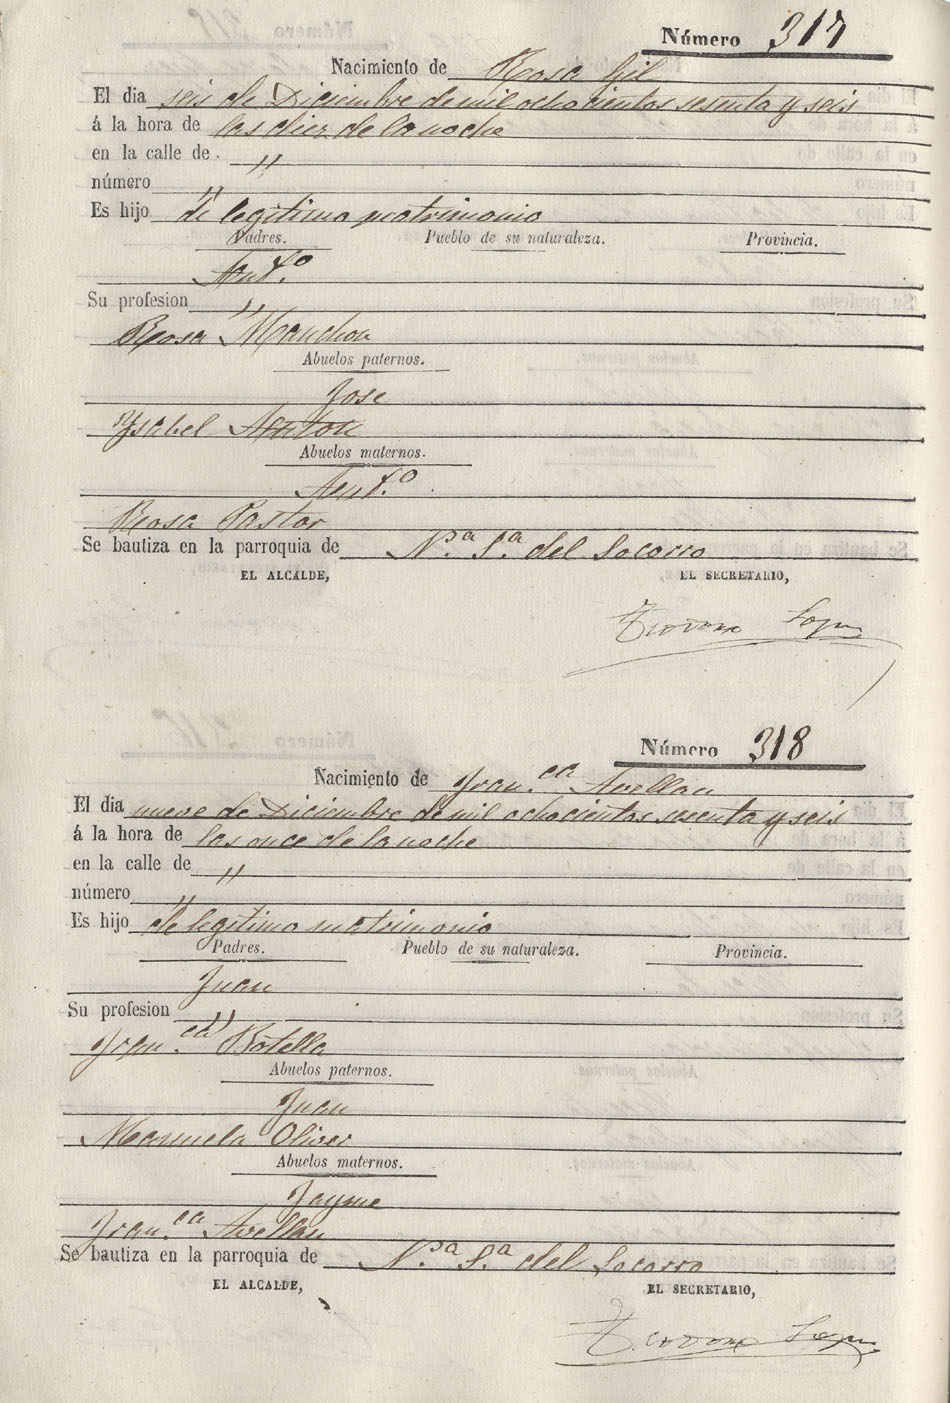 Número 317
Nacimiento de Rosa Gil
El dia seis de Diciembre de mil ochocientos sesenta y seis
á la hora de las diez de la noche
en la calle de . "
número "
Es hijo de legitimo matrimonio
Padres. Pueblo de su naturaleza. Provincia.
Ant.º
Su profesion "
Rosa Manchon
Abuelos paternos.
Jose
Ysabel Anton
Abuelos maternos.
Ant.º
Rosa Pastor
Se bautiza en la parroquia de N.ª S.ª del Socorro
EL ALCALDE, EL SECRETARIO,
Número 318
Nacimiento de Fran.ca Avellan
El dia nueve de Diciembre de mil ochocientos sesenta y seis
á la hora de las once de la noche
en la calle de "
número "
Es hijo de legitimo matrimonio
Padres. Pueblo de su naturaleza. Provincia.
Juan
Su profesion "
Fran.ca Botella
Abuelos paternos.
Juan
Manuela Oliver
Abuelos maternos.
Jayme
Fran.ca Avellan
Se bautiza en la parroquia de N.ª S.ª del Socorro
EL ALCALDE, EL SECRETARIO,